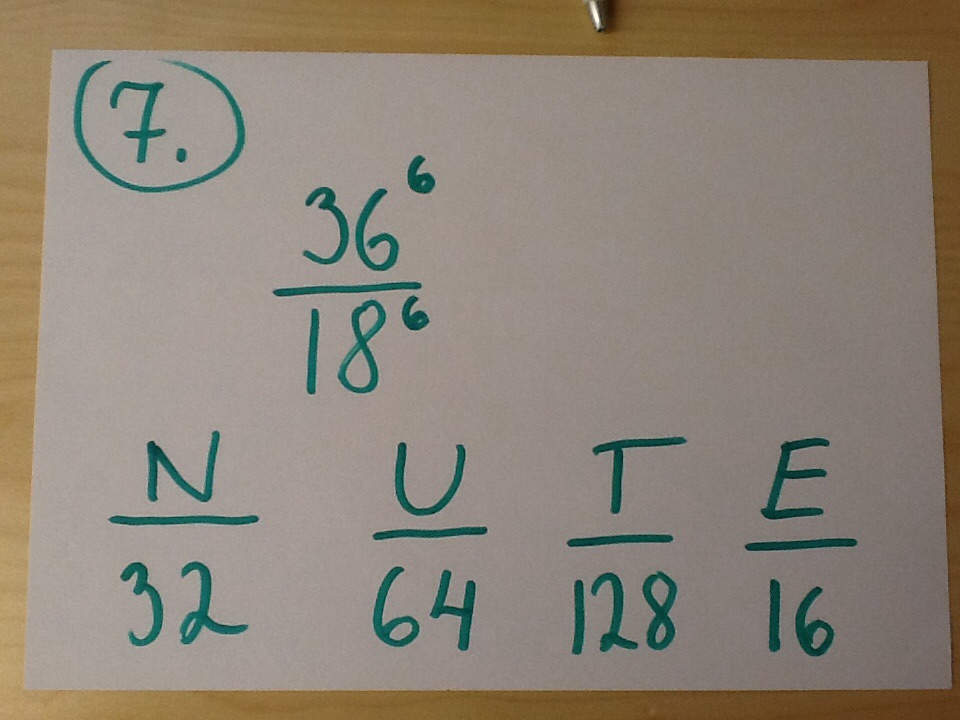 7.
36⁶
18⁶
N U T E
32 64 128 16